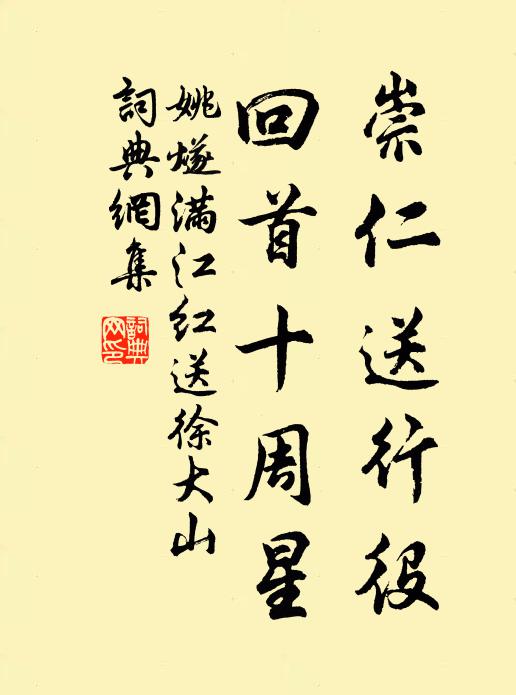 崇仁送行役
回首十周星
姚燧滿江紅送徐大山
詞典網集
詞典網印